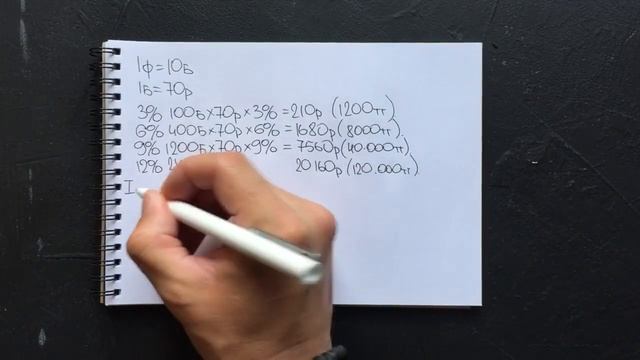 1ф=10Б
1Б=70р
3% 100Б×70р×3%=210р (1200тг)
6% 400Б×70р×6%=1680р(8000тг)
9% 1200Б×70р×9%=7560р(40.000тг)
12% 20160р(120.000тг)
I